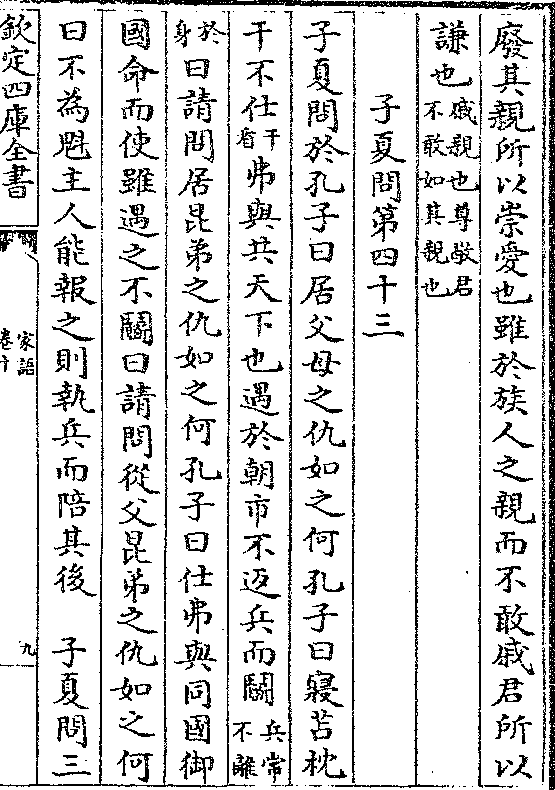 廢其親所以崇愛也雖於族人之親而不敢戚君所以
謙也戚親也尊敬君不敢如其親也
子夏問第四十三
子夏問於孔子曰居父母之仇如之何孔子曰寢苫枕
干不仕干盾弗與共天下也遇於朝市不返兵而鬬兵常不離
於身曰請問居昆弟之仇如之何孔子曰仕弗與同國御
國命而使雖遇之不鬬曰請問從父昆弟之仇如之何
曰不為魁主人能報之則執兵而陪其後 子夏問三
欽定四庫全書
家語
卷十
九